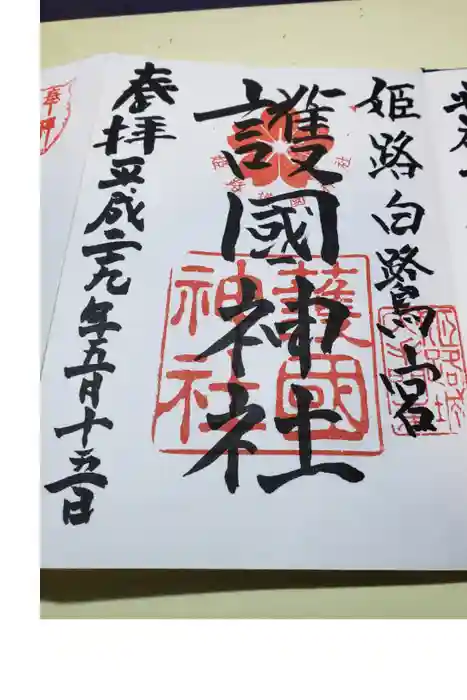 姫路白鷺宮
護國神社
護國
神社
奉拝 平成二十九年五月十五日
奉拝